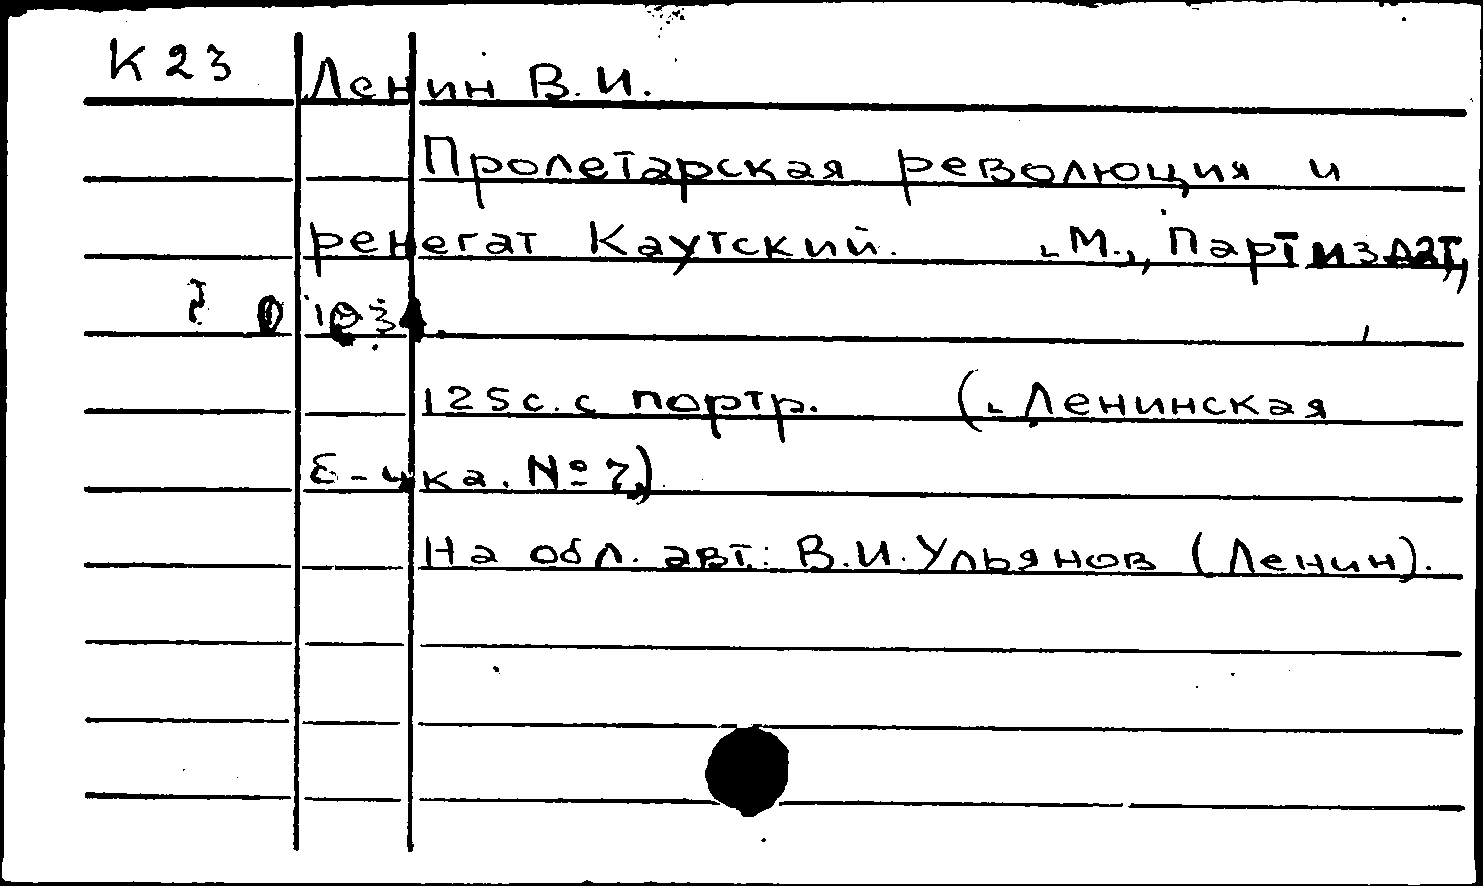 К 23
Ленин В.И.
Пролетарская революция и
ренегат Каутский. М., Партиздат,
125 с. с портр. (Ленинская
б-чка. № 7)
На обл. авт.: В.И.Ульянов (Ленин).